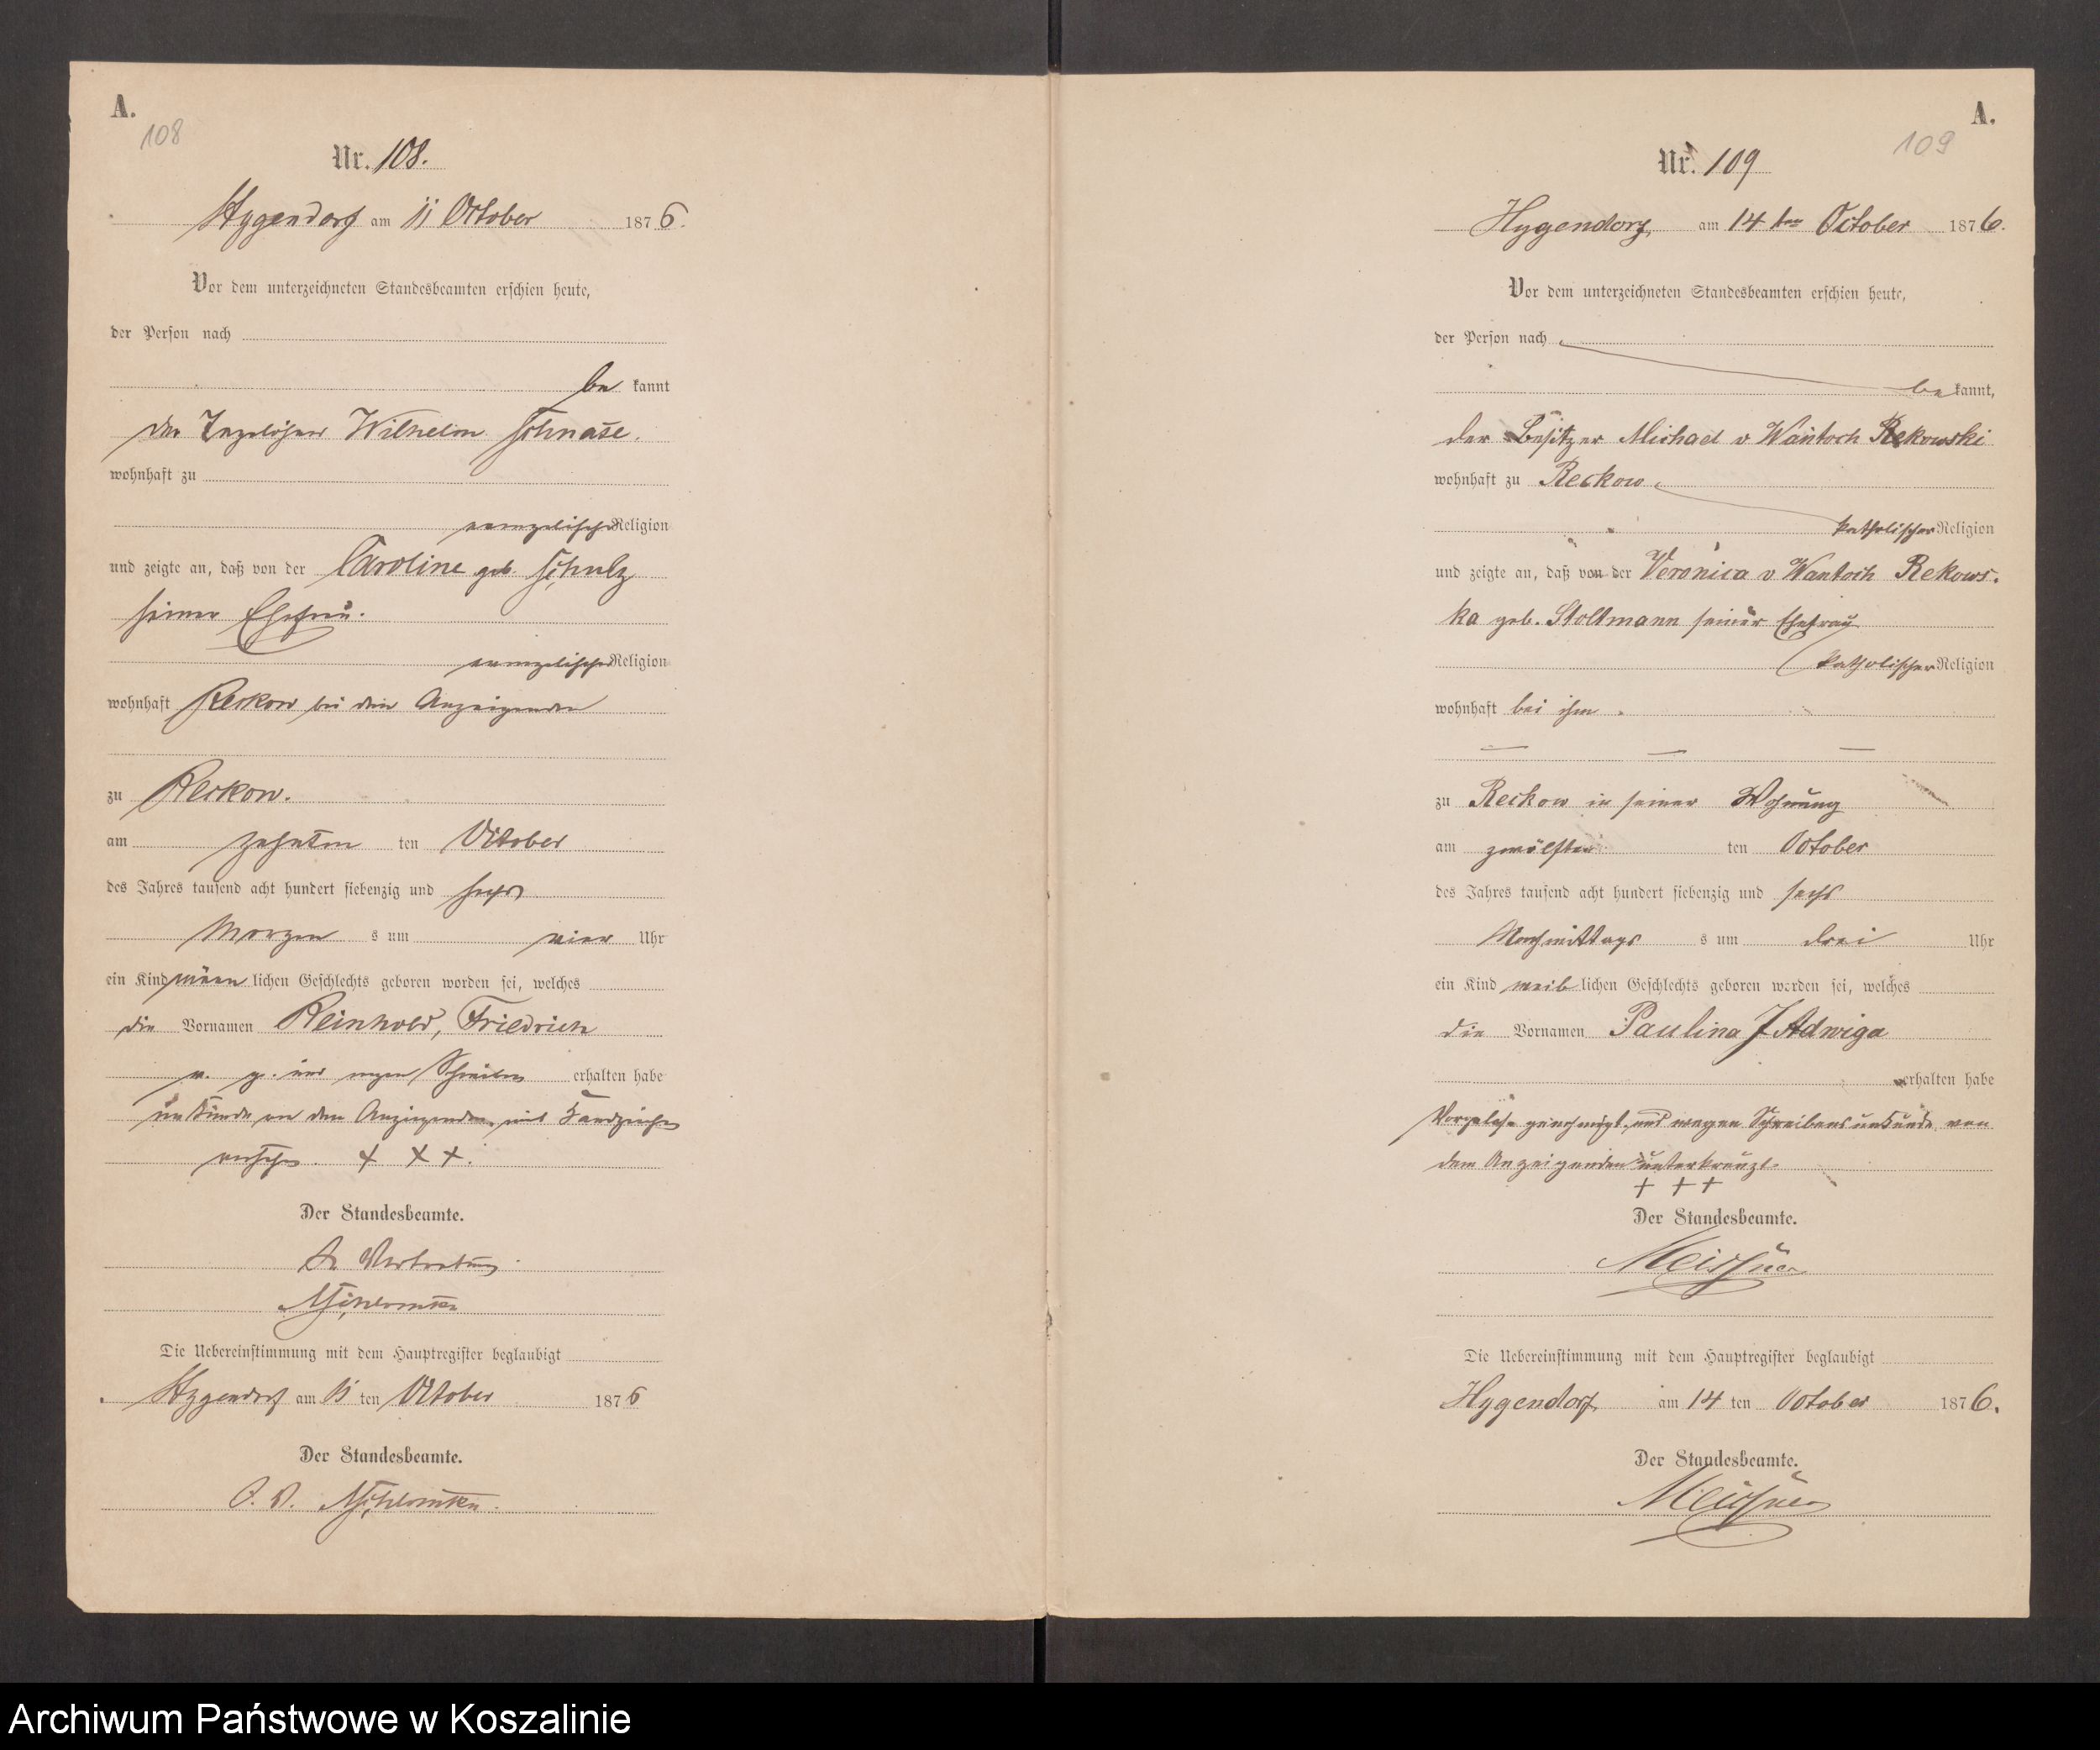 A.
108
Nr. 108.
Hygendorf am 11 October 1876.
Vor dem unterzeichneten Standesbeamten erschien heute,
der Person nach
be kannt
der Wilhelm Schnase.
wohnhaft zu
evangelischer Religion
und zeigte an, daß von der Caroline geb. Schulz
seiner Ehefrau.
evangelischer Religion
wohnhaft Reckow bei dem Anzeigenden
zu Reckow.
am zehnten ten October
des Jahres tausend acht hundert siebenzig und sechs
Morgen s um vier Uhr
ein Kind männ lichen Geschlechts geboren worden sei, welches
die Vornamen Reinhold, Friedrich
v. g. und wegen Schreibens erhalten habe
unkunde von dem Anzeigenden mit Handzeichen
versehen. + + +.
Der Standesbeamte.
In Vertretung.
Die Uebereinstimmung mit dem Hauptregister beglaubigt
Hygendorf am 11 ten October 1876
Der Standesbeamte.
I. V.
A.
109
Nr. 109
Hygendorf, am 14 ten October 1876.
Vor dem unterzeichneten Standesbeamten erschien heute,
der Person nach
be kannt,
der Besitzer Michael v Wantoch Rekowski
wohnhaft zu Reckow.
katholischer Religion
und zeigte an, daß von der Veronica v Wantoch Rekows-
ka geb. Stoltmann seiner Ehefrau
katholischer Religion
wohnhaft bei ihm.
zu Reckow in seiner Wohnung
am zwölften ten October
des Jahres tausend acht hundert siebenzig und sechs
Nachmittags s um drei Uhr
ein Kind weib lichen Geschlechts geboren worden sei, welches
die Vornamen Paulina
erhalten habe
Vorgelesen genehmigt und wegen Schreibensunkunde von
dem Anzeigenden unterkreuzt.
+ + +
Der Standesbeamte.
Meissner
Die Uebereinstimmung mit dem Hauptregister beglaubigt
Hygendorf, am 14 ten October 1876.
Der Standesbeamte.
Meissner
Archiwum Państwowe w Koszalinie